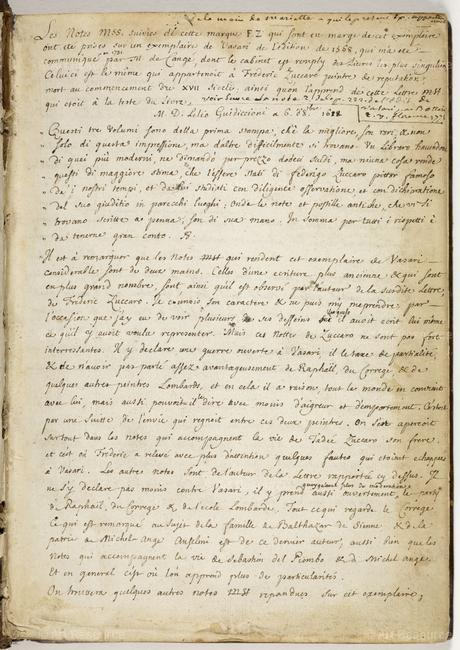 de la main de Mariette a qui le present Ex. appartenu
Les Notes MSS. suivies de cette marque F.Z qui sont en marge de cet exemplaire
ont ete prises sur un exemplaire de Vasari de l'edition de 1568, qui m'a ete
communiqué par M. de Cange, dont le cabinet est remply de Livres les plus singuliers
Celui ci est le même qui appartenoit à Frederic Zuccaro peintre de reputation
mort au commencement du XVII Siecle, ainsi qu'on l'apprend de cette Lettre mst
qui etoit à la teste du Livre,
M. D. Lelio Guidiccioni a 6. 8bre 1628
Questi tre volumi sono della prima stampa, ch'è la migliore, son rari, & non
solo di questa impressione, ma altre difficilmente si trovano. Un Libraro havendone
di quei più moderni, ne dimandò per prezzo dodeci Scudi, ma niuna cosa rende
questi di maggiore stima, che l'essere stati di federigo Zuccaro pittor famoso
de i nostri tempi, et da lui studiati con diligente osservatione, et con dichiaratione
del suo giuditio in parecchi luoghi, onde le note et postille antiche, che vi si
trovano scritte a penna, son di sua mano. In somma per tutti i rispetti è
da tenerne gran conto.
Il est à remarquer que les Notes mst qui rendent cet exemplaire de Vasari
considerable sont de deux mains. Celles d'une ecriture plus ancienne & qui sont
en plus grand nombre, sont ainsi qu'il est observé par l'auteur de la susdite Lettre
de Frederic Zuccaro. Je connois son caractere & ne puis m'y meprendre, par
l'occasion que j'ay eu de voir plusieurs de ses desseins où il avoit ecrit lui même
ce qu'il y avoit voulu representer. Mais ces Notes de Zuccaro ne sont pas fort
interressantes. Il y declare une guerre ouverte à Vasari, il le taxe de partialité,
& de n'avoir pas parlé assez avantageusement de Raphaël, du Correge & de
quelques autres peintres Lombards, et en cela il a raison, tout le monde en convient
avec lui, mais aussi pouvoit-il le dire avec moins d'aigreur et d'emportement. C'etoit
par une Suitte de l'envie qui regnoit entre ces deux peintres. On s'en aperçoit
surtout dans les notes qui accompagnent la vie de Tadée Zuccaro son frere,
et c'est où Frederic a relevé avec plus d'attention quelques fautes qui etoient echappées
à Vasari. Les autres notes sont de l'auteur de la Lettre rapportée cy dessus. Il
ne s'y declare pas moins contre Vasari, il y prend aussi ouvertement, le parti
quoyque avec plus de moderation
de Raphaël, du Correge & de l'ecole Lombarde. Tout ce qui regarde le Correge
ce qui est remarqué au Sujet de la famille de Balthazar de Sienne & de la
patrie de Michel Ange Anselmi est de ce dernier auteur, aussi bien que les
Notes qui accompagnent la vie de Sebastien del Piombo & de Michel ange
Et en general c'est où l'on apprend plus de particularités.
On trouvera quelques autres notes mst repandues sur cet exemplaire;